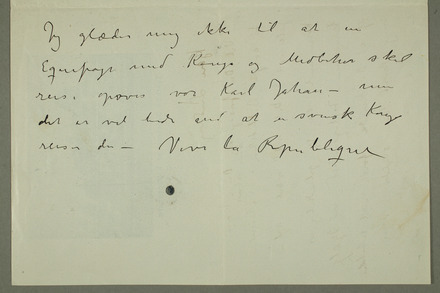 Jeg glæder mig ikke til at en
Equipage med Konge og Medbehør skal
reise opover vor Karl Johan — men
det er vel bedre end at en svensk Konge
reiser der — Vive la Republique